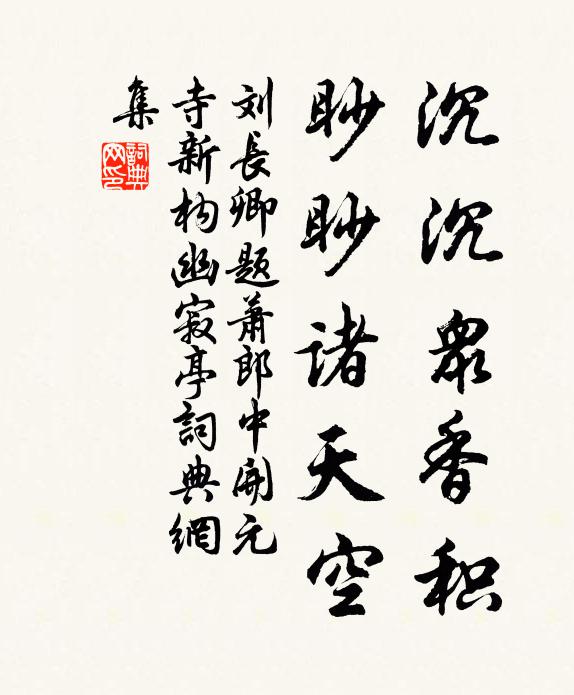 沉沉眾香积
眇眇诸天空
刘長卿题萧郎中開元
寺新构幽寂亭詞典網
集
詞典
网印